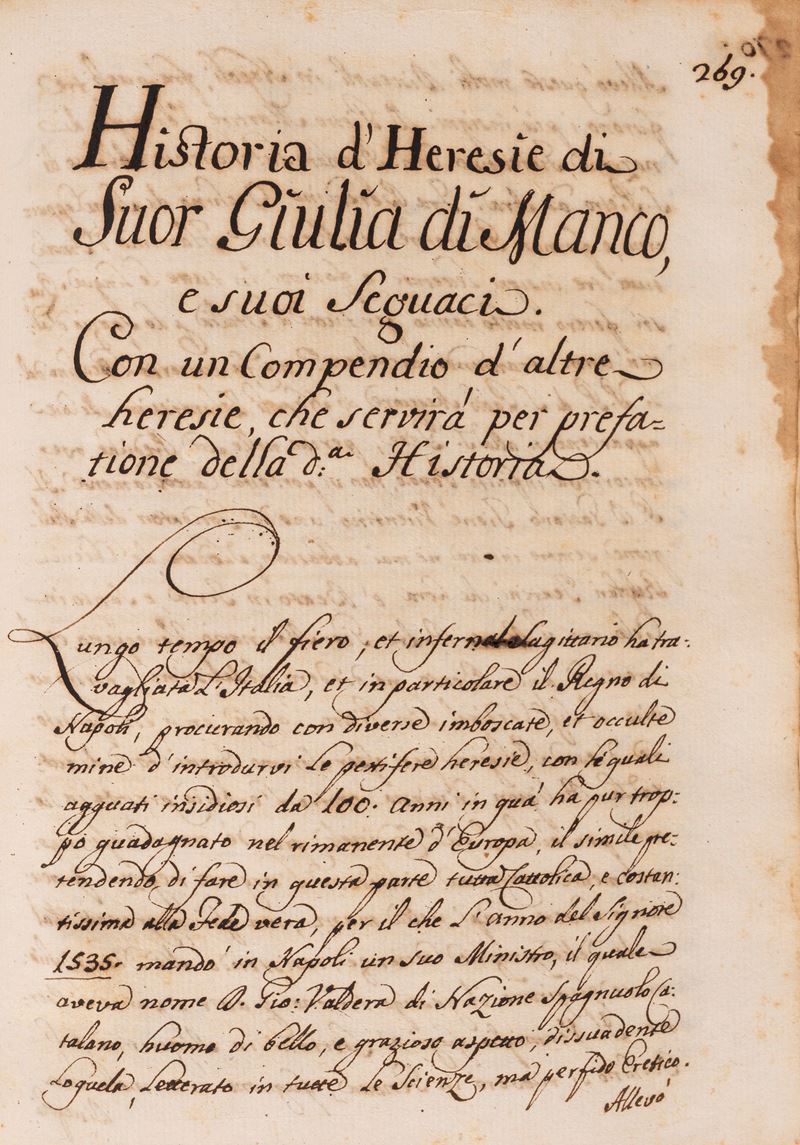 269.
Historia d'Heresie di
Suor Giulia di Manco,
e suoi Seguaci.
Con un Compendio d'altre
heresie, che servirá per prefa=
tione della d:ª Historia.
Lungo tempo il fiero, et infernal Sagittario ha tra-
vagliata L'Italia, et in particolare il Regno di
Napoli, procurando con diverse imboscate, et occulte
mine d'introdurvi Le pestifere heresie, con le quali
agguati insidiosi da 100. anni in quá há pur trop-
pó guadagnato nel rimanente d'Europa, il simile pre-
tendendo di fare in questa parte tutta Cattolica, e costan-
tissima alla Fede vera, per il che L'anno del Signore
1535. mandó in Napoli un suo Ministro, il quale
aveva nome D. Gio: Valdera di Nazione Spagnuolo Ca-
talano, huomo di bello, e grazioso aspetto, dissuadente
Loquela, Letterato in tutte Le Scienze, má perfido Eretico.
Allevó